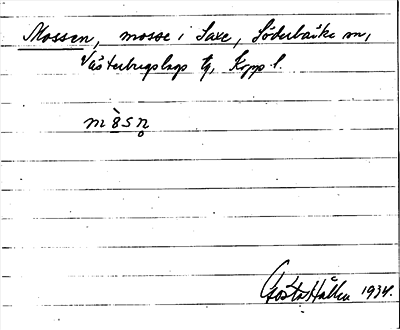 Mossen, mosse i Saxe, Söderbärke sn,
Västerbergslags tg, Kopp l.
m ò̤ s n̥
Gösta Hållen 1934.